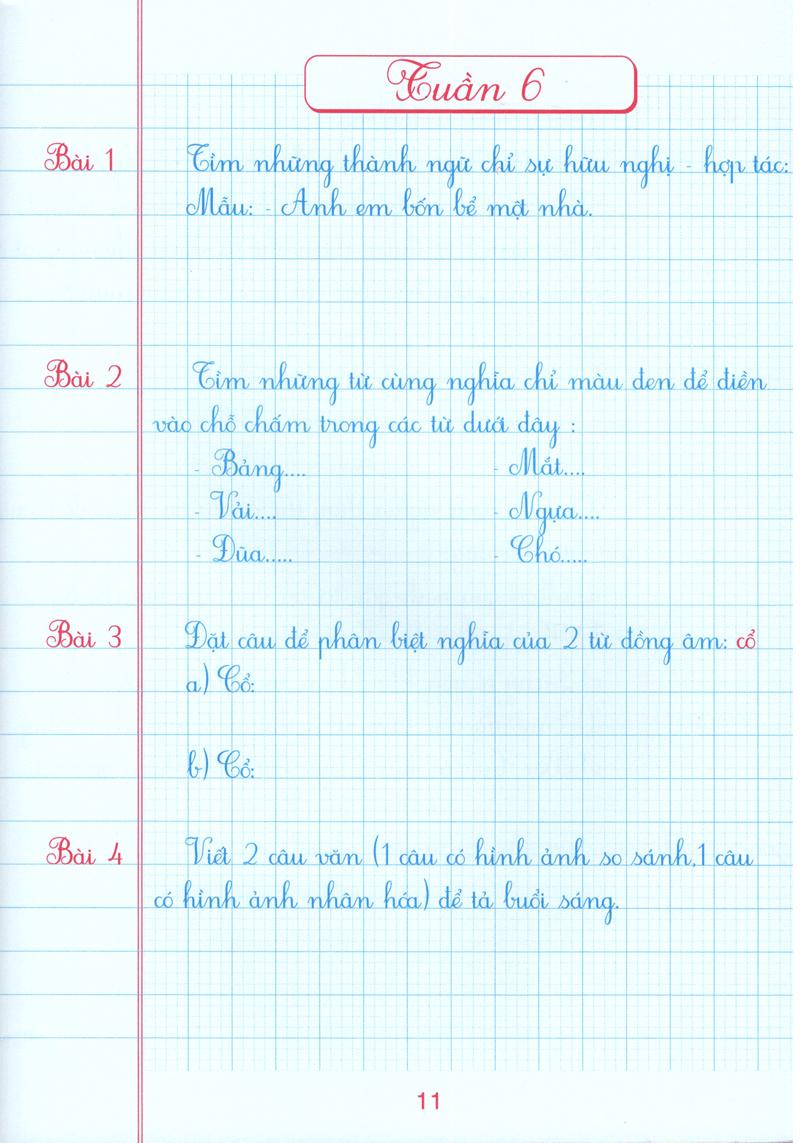 Tuần 6
Bài 1 Tìm những thành ngữ chỉ sự hữu nghị - hợp tác:
Mẫu: - Anh em bốn bể một nhà.
Bài 2 Tìm những từ cùng nghĩa chỉ màu đen để điền
vào chỗ chấm trong các từ dưới đây :
- Bảng.... - Mắt....
- Vải.... - Ngựa....
- Đũa..... - Chó.....
Bài 3 Đặt câu để phân biệt nghĩa của 2 từ đồng âm: cổ
a) Cổ:
b) Cổ:
Bài 4 Viết 2 câu văn (1 câu có hình ảnh so sánh,1 câu
có hình ảnh nhân hóa) để tả buổi sáng.
11